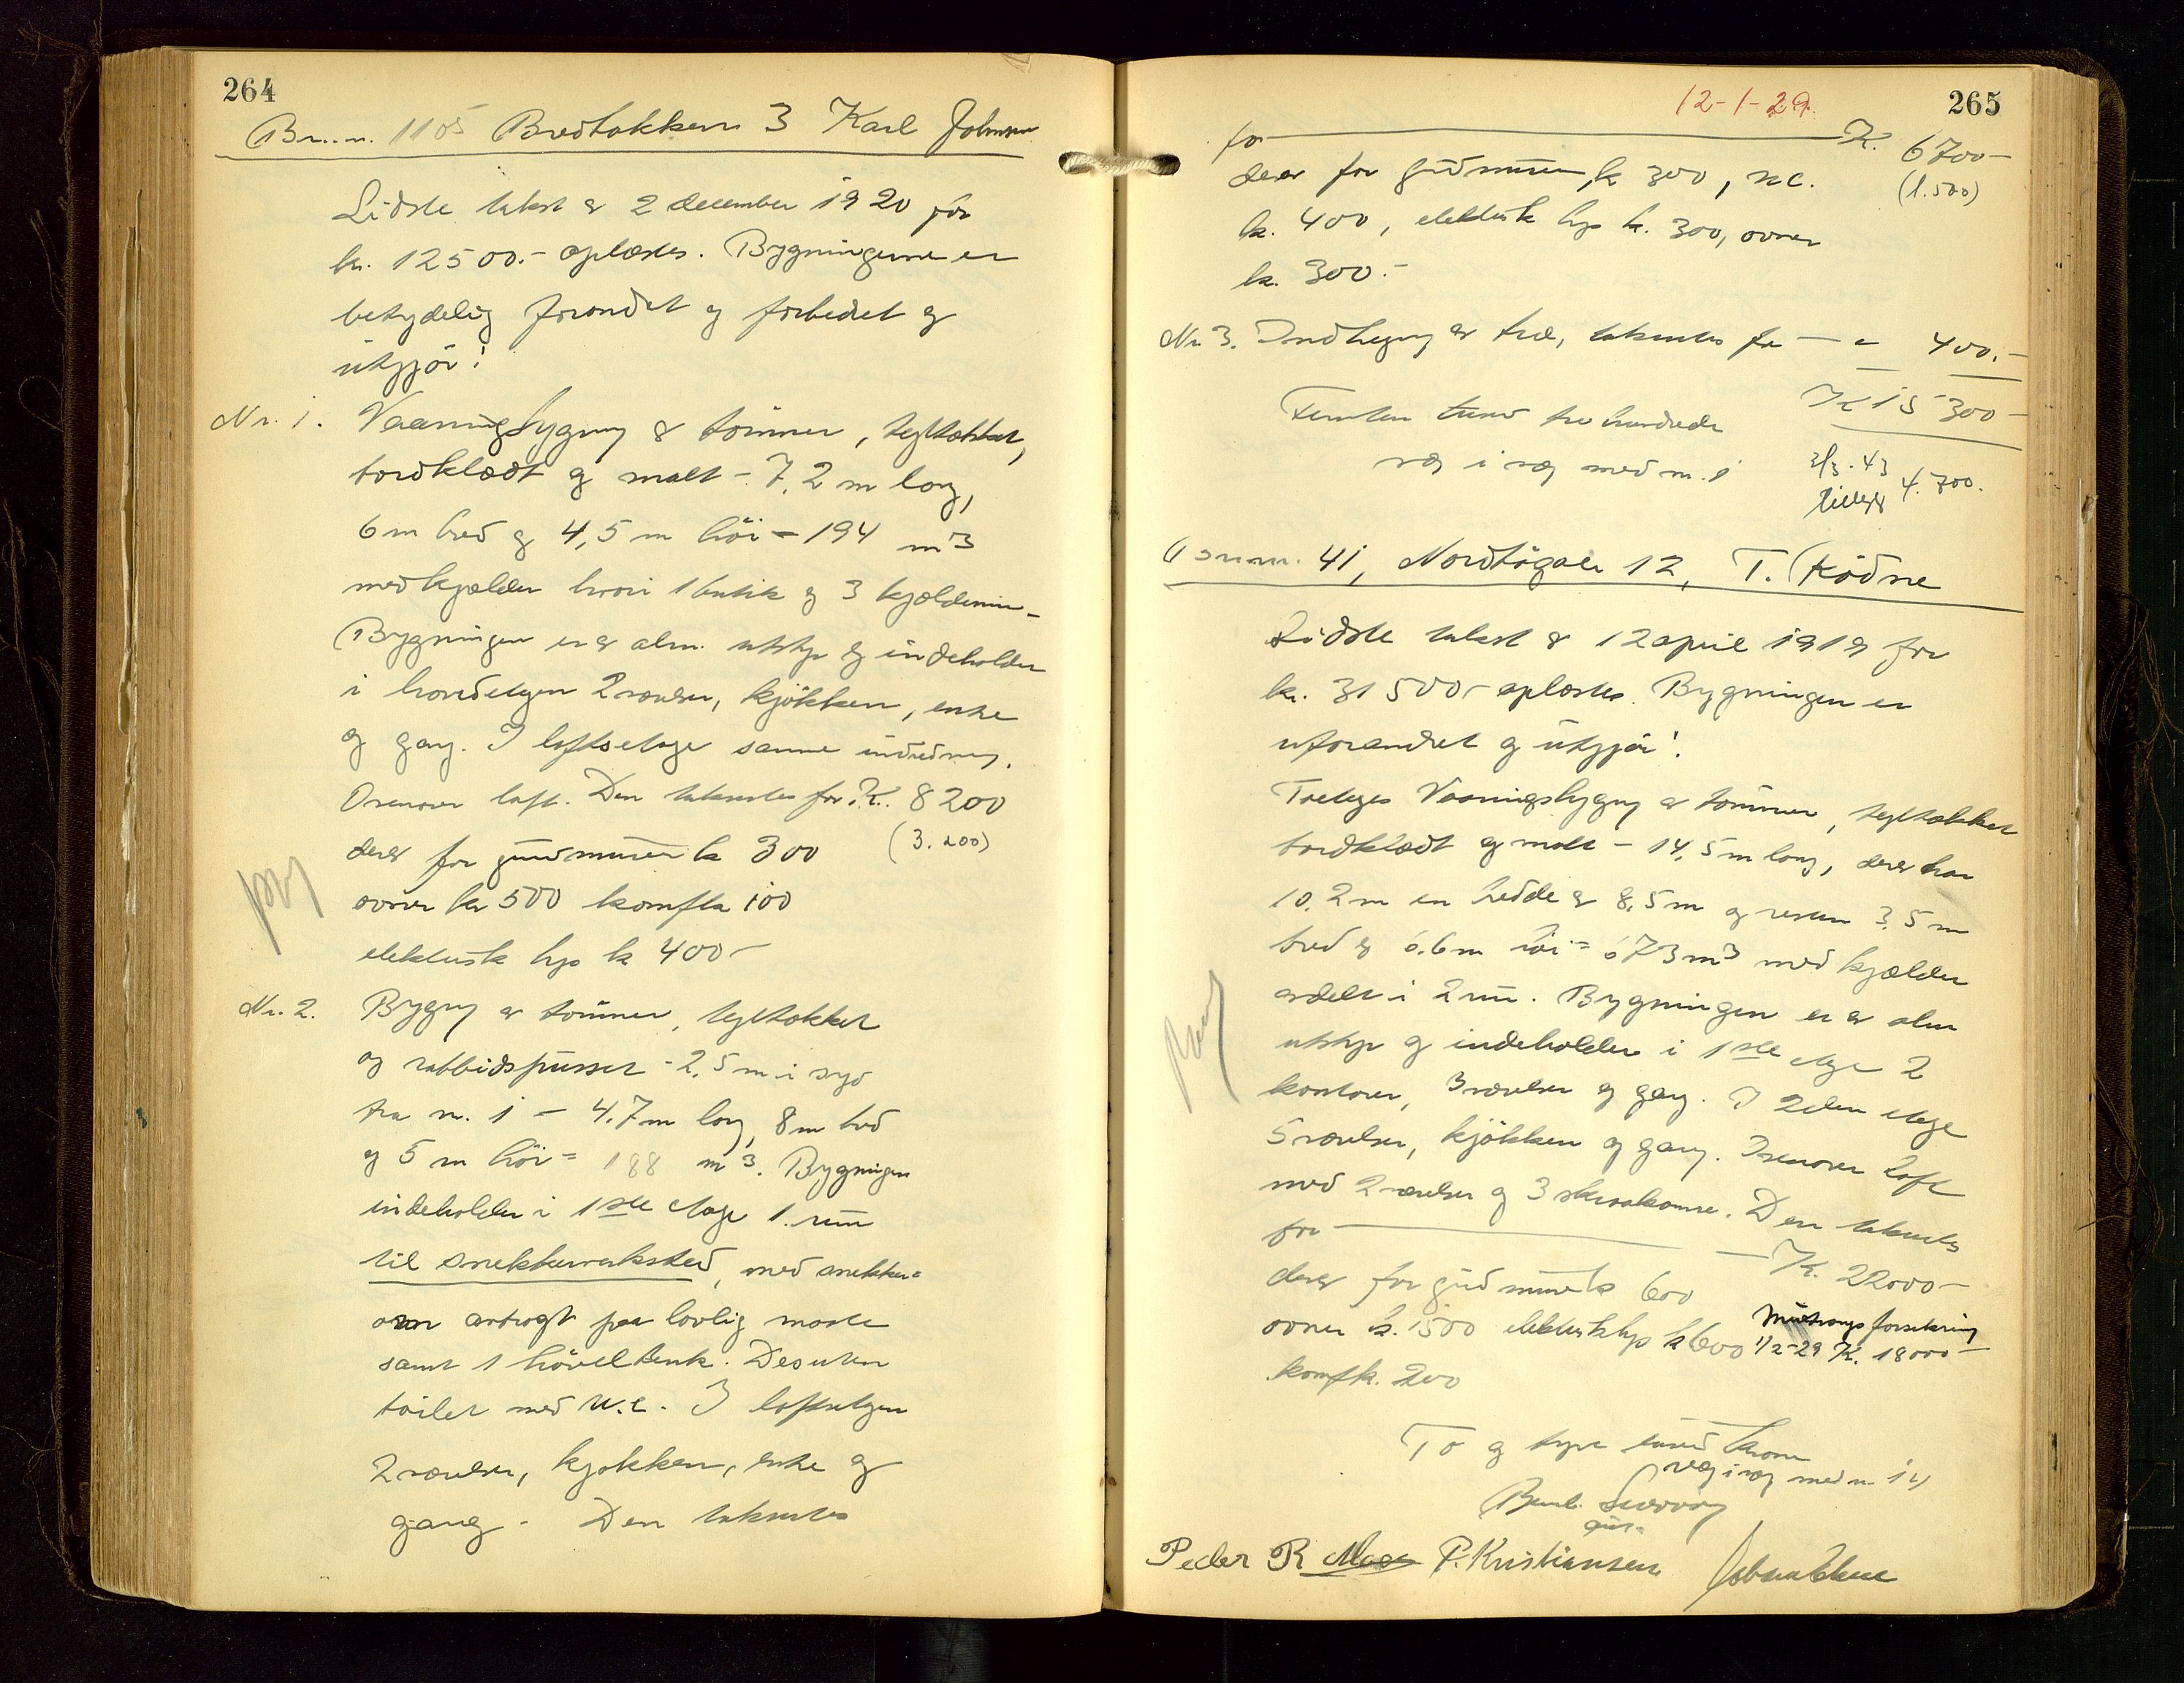 264
Br.n. 1105 Bredbakken 3 Karl Johnsen
Sidste takst av 2 december 1920 for
kr. 12500.- oplæstes. Bygningerne er
betydelig forandret og forbedret og
utgjør:
Nr. 1. Vaaningsbygning av tømmer, tegltækket,
bordklædt og malt - 7,2 m lang,
6 m bred og 4,5 m høi = 194 m3
med kjælder hvori 1 butik og 3 kjælderrum -
Bygningen er av alm. utstyr og indeholder
i hovedetagen 2 værelser, kjøkken, entre
og gang. I loftsetage samme indredning.
Ovenover loft. Den takseres for K. 8200
derav for grundmurer kr 300 (3.200)
ovner kr 500 komfkr 100
elektrisk lys kr 400 -
Nr. 2. Bygning av tømmer, tegltækket
og rabbidspusset - 2,5 m i syd
fra nr. 1 - 4.7 m lang, 8 m bred
og 5 m høi = 188 m3. Bygningen
indeholder i 1ste etage 1 rum
til snekkerverksted, med snekker=
ovn anbragt paa lovlig maate
samt 1 høvelbenk. Desuten
toilet med w.c. I loftsetagen
2 værelser, kjøkken, entre og
gang - Den takseres
265
12-1-29.
for K. 6700 -
derav for grundmuren kr 300, w.c. (1.500)
kr. 400, elektrisk lys kr. 300, ovner
kr. 300.-
Nr 3. Indhegning av træ, takseres for - " 400.-
K 15300 -
Femten tusen tre hundrede
væg i væg med nr. 1
3/3.43
tillegg 4.700.
Br.nr. 41, Nordbøgate 12, T. Kødne
Sidste takst av 12 april 1919 for
kr. 31500 - oplæstes. Bygningen er
uforandret og utgjør:
Toetages Vaaningsbygning av tømmer, tegltækket
bordklædt og malt - 14,5 m lang, derav har
10,2 m en bredde av 8,5 m og resten 3,5 m
bred og 6.6 m høi = 673 m3 med kjælder
avdelt i 2 rum. Bygningen er av alm
utstyr og indeholder i 1ste etage 2
kontorer, 3 værelser og gang. I 2den etage
5 værelser, kjøkken og gang. Ovenover loft
med 2 værelser og 3 skraakamre. Den takseres
for K. 22000 -
derav for grundmur kr 600
ovner kr. 1500 elektrisk lys kr 600
komfkr. 200
forsikring
1/2-29 K. 18000 -
To og tyve tusen kroner
væg i væg med nr. 14
P. Kristiansen
Peder R